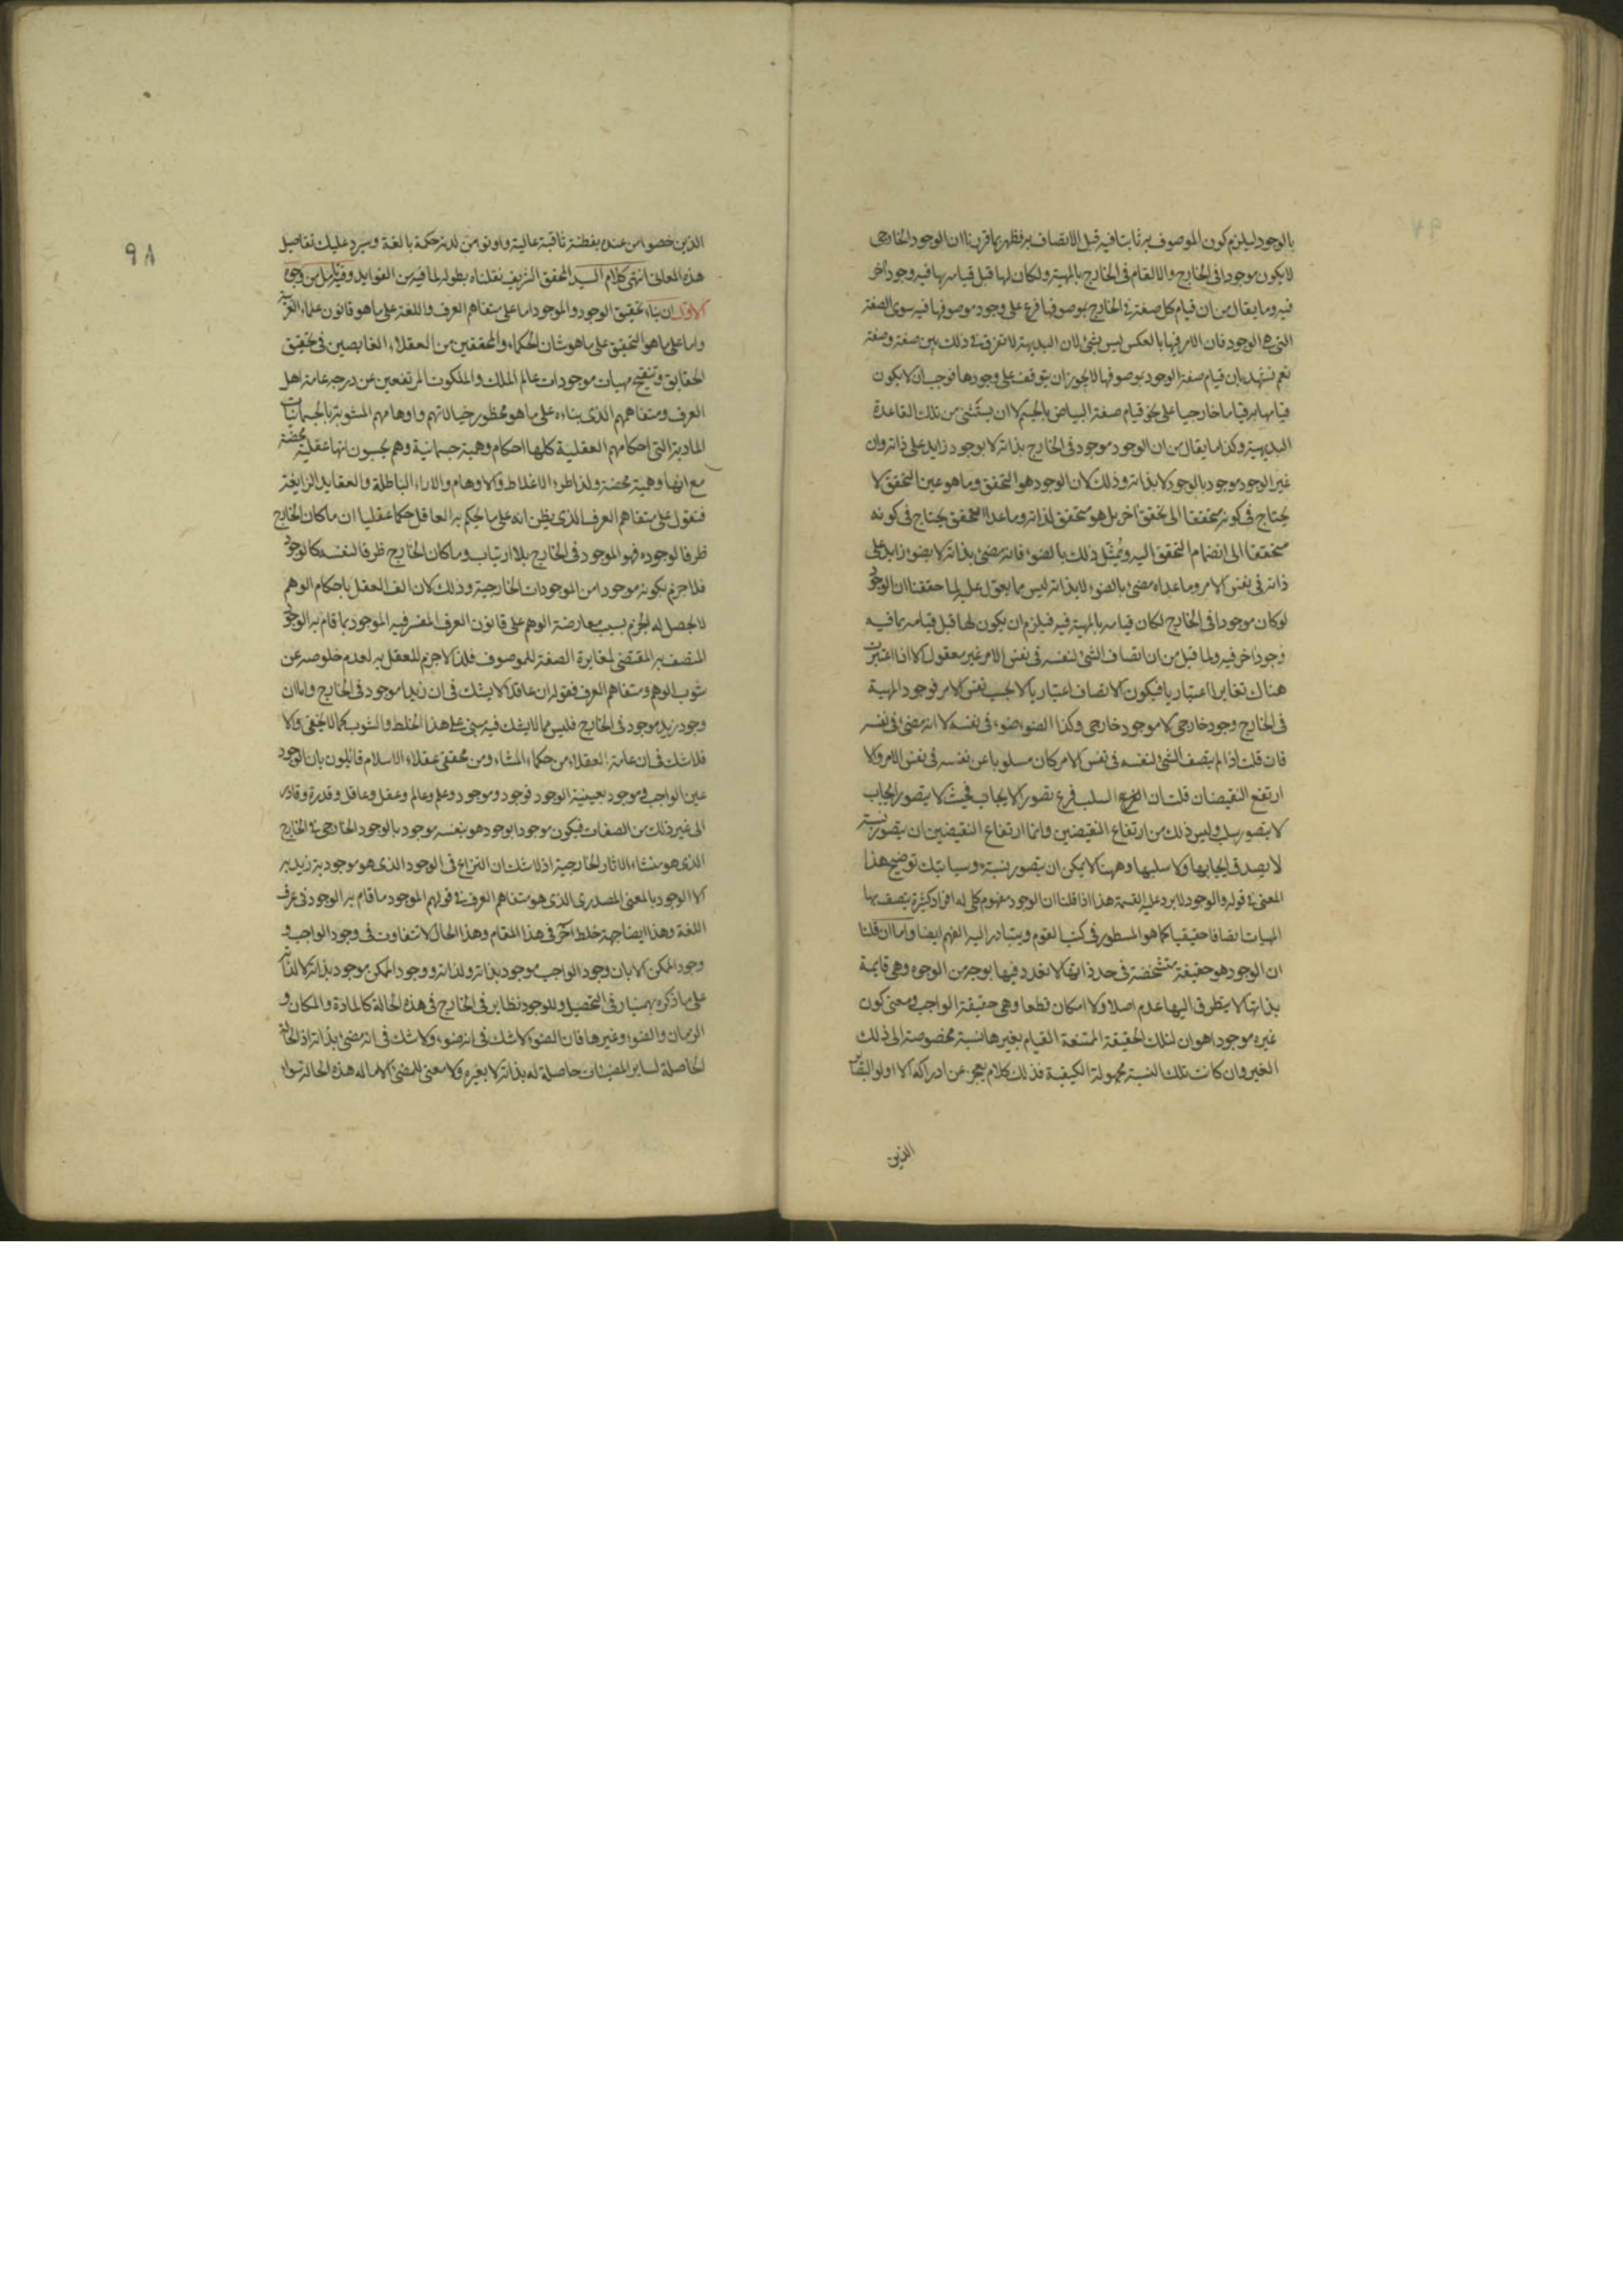 بالوجود ليلزم كون الموصوف به ثابتا فيه قبل الاتصاف به فظهر بما قررنا ان الوجود الخارجى
لا يكون موجودا فى الخارج والا لقام فى الخارج بالمهية ولكان لها قبل قيامه بها فيه وجود اخر
فيه وما يقال من ان قيام كل صفة فى الخارج بموصوفها فرع على وجود موصوفها فيه سوى الصفة
التى هى الوجود فان الامر فيها بالعكس ليس بشئ لان البديهة لا تفرق فى ذلك بين صفة وصفة
نعم تشهد بان قيام صفة الوجود بموصوفها لا يجوز ان يتوقف على وجودها فوجب ان لا يكون
قيامها به قياما خارجيا على نحو قيام صفة البياض بالجسم لا ان يستثنى من تلك القاعدة
البديهية وكذا ما يقال من ان الوجود موجود فى الخارج بذاته لا بوجود زايد على ذاته وان
غير الوجود موجود بالوجود لا بذاته وذلك لان الوجود هو التحقق وما هو عين التحقق لا
يحتاج فى كونه متحققا الى تحقق اخر بل هو متحقق لذاته وما عدا التحقق يحتاج فى كونه
متحققا الى انضمام التحقق اليه ويمثل ذلك بالضوء فانه مضئ بذاته لا بضوء زايد على
ذاته فى نفس الامر وما عداه مضئ بالضوء لا بذاته ليس مما يعول عليه لما حققنا ان الوجود
لو كان موجودا فى الخارج لكان قيامه بالمهية فيه فيلزم ان يكون لها قبل قيامه بها فيه
وجود اخر فيه ولما قيل من ان اتصاف الشئ لنفسه فى نفس الامر غير معقول الا اذا اعتبرت
هناك تغايرا اعتباريا فيكون الاتصاف اعتباريا لا بحسب نفس الامر فوجود المهية
فى الخارج وجود خارجى لا موجود خارجى وكذا الضوء ضوء فى نفسه لا انه مضئ فى نفسه
فان قلت اذا لم يتصف الشئ لنفسه فى نفس الامر كان مسلوبا عن نفسه فى نفس الامر والا
ارتفع النقيضان قلت ان السلب فرع تصور الايجاب فحيث لا يتصور ايجاب
لا يتصور سلب وليس ذلك من ارتفاع النقيضين وانما ارتفاع النقيضين ان يتصور نسبة
لا يصدق ايجابها ولا سلبها وههنا لا يمكن ان يتصور نسبة وسياتيك توضيح هذا
المعنى فى قوله والوجود لا يرد عليه القسمة هذا اذا قلنا ان الوجود مفهوم كلى له افراد كثيرة يتصف بها
المهيات اتصافا حقيقيا كما هو المسطور فى كتب القوم ويتبادر اليه الفهم ايضا واما ان قلنا
ان الوجود هو حقيقة متشخصة فى حد ذاتها لا تعدد فيها بوجه من الوجوه وهى قايمة
بذاتها لا يتطرق اليها عدم اصلا ولا امكان قطعا وهى حقيقة الواجب ومعنى كون
غيره موجودا هو ان لتلك الحقيقة الممتنعة القيام بغيرها نسبة مخصوصة الى ذلك
الغير وان كانت تلك النسبة مجهولة الكيفية فذلك كلام يعجز عن ادراكه الا اولوا البصاير
الذين
٩٨
الذين خصوا من عنده بفطنة ثاقبة عالية واوتوا من لدنه حكمة بالغة وسيرد عليك تفاصيل
هذه المعانى انتهى كلام السيد المحقق الشريف نقلناه بطوله لما فيه من الفوايد وفيه تامل من وجوه
الاول ان بناء تحقيق الوجود والموجود اما على متفاهم العرف واللغة على ما هو قانون علماء العربية
واما على ما هو التحقيق على ما هو شان الحكماء والمحققين من العقلاء الغايصين فى تحقيق
الحقايق وتنقيح مهيات موجودات عالم الملك والملكوت المرتفعين عن درجة عامة اهل
العرف ومتفاهمهم الذى بناءه على ما هو محظور خيالاتهم واوهامهم المشوبة بالجسمانيات
المادية التى احكامهم العقلية كلها احكام وهمية جسمانية وهم يحسبون انها عقلية محضة
مع انها وهمية محضة ولذا طرء الاغلاط والاوهام والاراء الباطلة والعقايد الزايغة
فنقول على متفاهم العرف الذى يظن انه على ما يحكم به العاقل حكما عقليا ان ما كان الخارج
ظرفا لوجوده فهو الموجود فى الخارج بلا ارتياب وما كان الخارج ظرفا لنفسه كالوجود
فلا جزم بكونه موجودا من الموجودات الخارجية وذلك لان الف العقل باحكام الوهم
لا يحصل له الجزم بسبب معارضة الوهم على قانون العرف المفسر فيه الموجود بما قام به الوجود
المتصف به المقتضى لمغايرة الصفة للموصوف فلذا لا جزم للعقل به لعدم خلوصه عن
شوب الوهم ومتفاهم العرف فقوله ان عاقلا لا يشك فى ان زيدا موجود فى الخارج واما ان
وجود زيد موجود فى الخارج فليس مما لا يشك فيه مبنى على هذا الخلط والشوب كما لا يخفى والا
فلا شك فى ان عامة العقلاء من حكماء المشاء ومن محققى عقلاء الاسلام قائلون بان الوجود
عين الواجب وموجود بعينية الوجود فوجود وموجود وعلم وعالم وعقل وعاقل وقدرة وقادر
الى غير ذلك من الصفات فيكون موجودا بوجود هو بنفسه موجود بالوجود الخارجى فى الخارج
الذى هو منشاء الاثار الخارجية اذ لا شك ان النزاع فى الوجود الذى هو موجودية زيد به
لا الوجود بالمعنى المصدرى الذى هو متفاهم العرف فى قولهم الموجود ما قام به الوجود فى عرف
اللغة وهذا ايضا جهة خلط اخر فى هذا المقام وهذا الحال لا تتفاوت فى وجود الواجب و
وجود الممكن الا بان وجود الواجب موجود بذاته ولذاته ووجود الممكن موجود بذاته لا لذاته
على ما ذكره بهمنيار فى التحصيل وللوجود نظاير فى الخارج فى هذه الحالة كالمادة والمكان و
الزمان والضوء وغيرها فان الضوء لا شك فى انه ضوء ولا شك فى انه مضئ بذاته اذ الحالة
الحاصلة لساير المضيئات حاصلة له بذاته لا بغيره ولا معنى للمضئ الا ما له هذه الحالة سواء